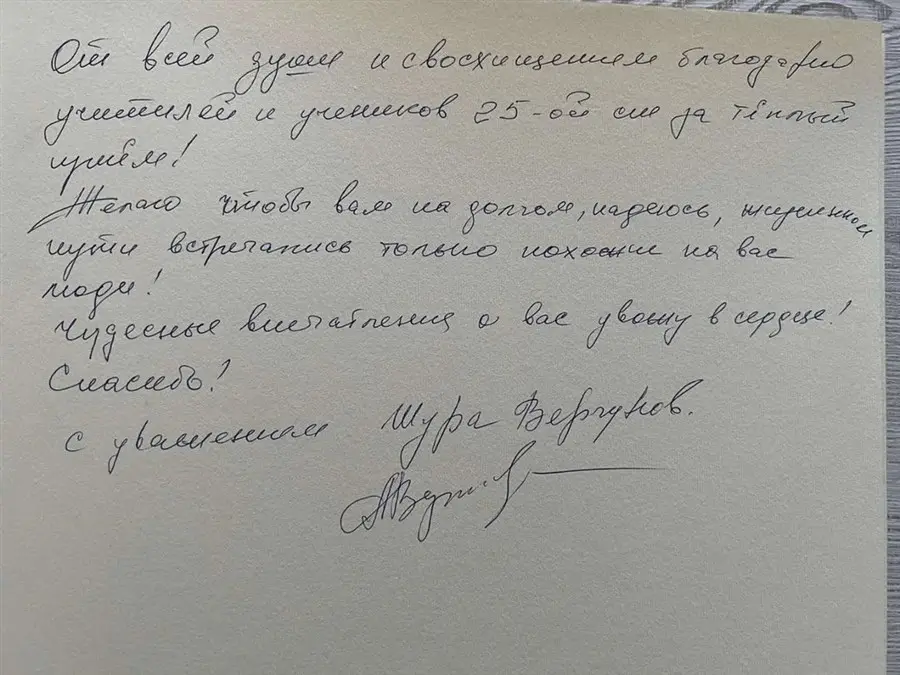 От всей души и с восхищением благодарю
учителей и учеников 25-ой сш за тёплый
приём!
Желаю чтобы вам на долгом, надеюсь, жизненном
пути встречались только похожие на вас
люди!
Чудесные впечатления о вас увожу в сердце!
Спасибо!
С уважением Шура Вергунов.